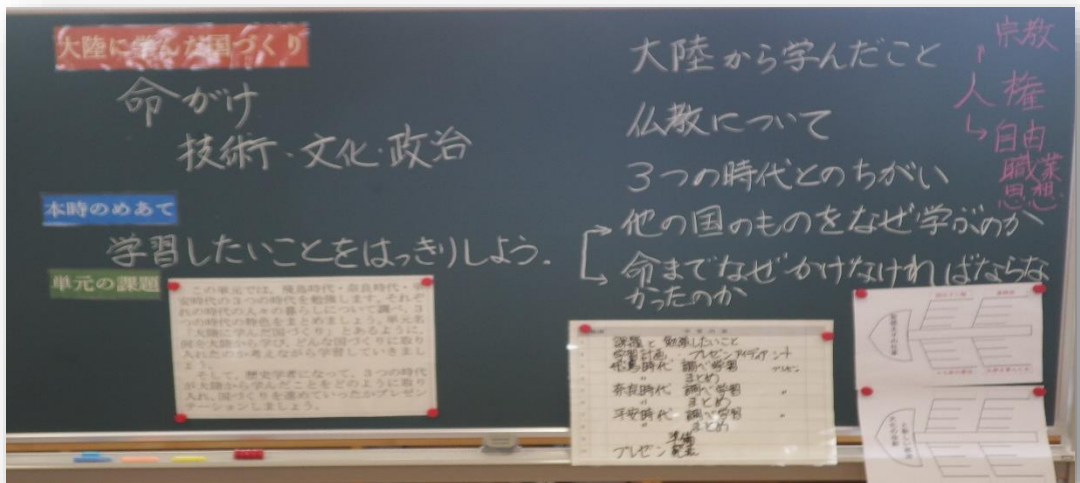 大陸に学んだ国づくり
命がけ
技術・文化・政治
本時のめあて
学習したいことをはっきりしよう.
単元の課題
この単元では、飛鳥時代・奈良時代・平
安時代の3つの時代を勉強します。それぞ
れの時代の人々の暮らしについて調べ、3
つの時代の特色をまとめましょう。単元名
「大陸に学んだ国づくり」とあるように、
何を大陸から学び、どんな国づくりに取り
入れたのか考えながら学習していきまし
ょう。
そして、歴史学者になって、3つの時代
が大陸から学んだことをどのように取り
入れ、国づくりを進めていったかプレゼン
テーションしましょう。
大陸から学んだこと
仏教について
3つの時代とのちがい
他の国のものをなぜ学ぶのか
命までなぜかけなければならな
かったのか
宗教
人権
自由
職業
思想
課題と 勉強したいこと
学習計画
飛鳥時代 調べ学習
〃 まとめ
奈良時代 調べ学習 〃
〃 まとめ
平安時代 調べ学習 〃
〃 まとめ
準備
プレゼン 発表